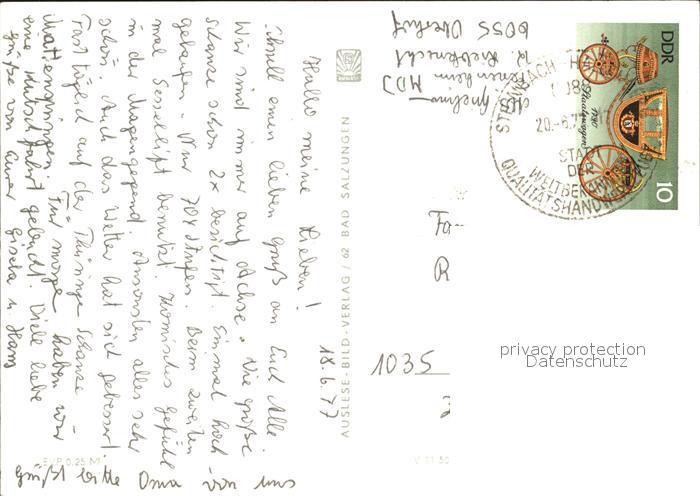 18.6.77
Hallo meine Lieben!
Schnell einen lieben Gruß an Euch Alle.
Wir sind immer auf Achse. Die große
Schanze schon 2x besichtigt. Einmal hoch
gelaufen – Nur 701 Stufen. Beim zweiten
mal Sessellift benutzt. Komisches Gefühl
in der Magengegend. Ansonsten alles sehr
schön. Auch das Wetter hat sich gebessert.
Fast täglich auf der Thüringe Schanze –
Mattenspringen. Für morgen haben wir
eine Kutschfahrt gebucht. Viele liebe
Grüße von Eurer Gisela u. Hans
Grüßt bitte Oma von uns
AUSLESE-BILD-VERLAG / 62 BAD SALZUNGEN
EVP 0,25 M
V 11 50
MDJ
K. Liebknecht
6055 Oberhof
DDR
1790
Staatswagen
10
20.-6.7
STADT
DER
WELTBEKANNTEN
QUALITÄTSHANDW
1035
privacy protection
Datenschutz